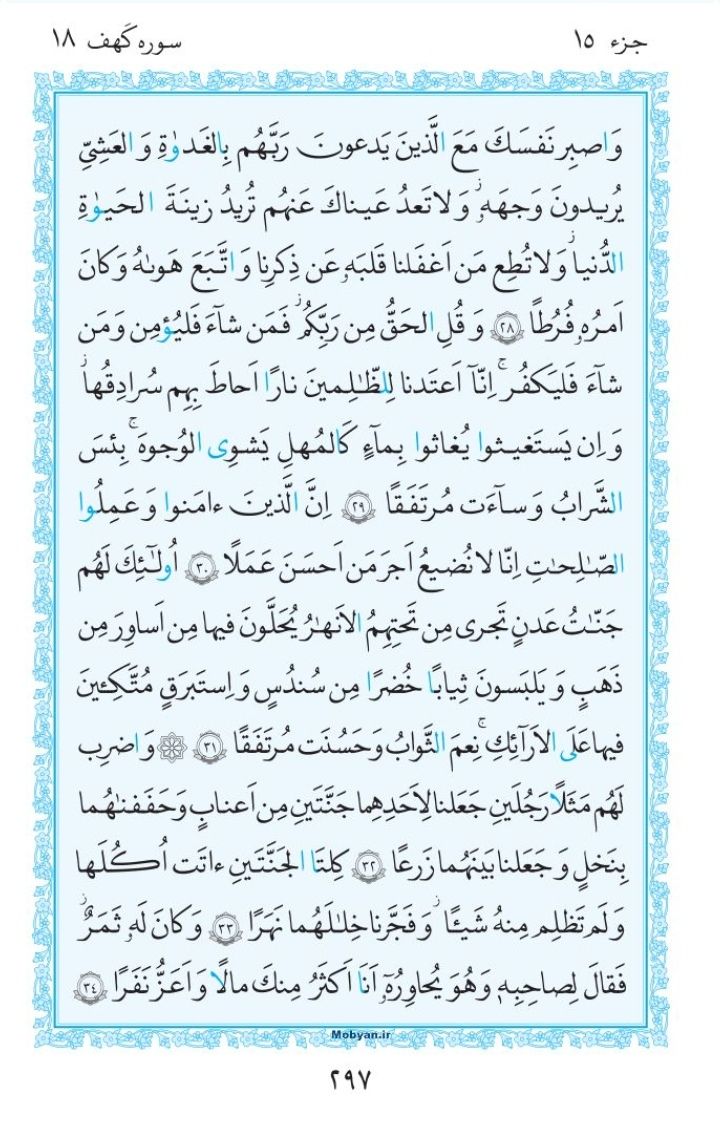 جزء ١٥
سوره کهف ١٨
وَاصبِر نَفسَكَ مَعَ الَّذينَ يَدعونَ رَبَّهُم بِالغَدوٰةِ وَالعَشِيِّ
يُريدونَ وَجهَهُۥ ۖ وَلا تَعدُ عَيناكَ عَنهُم تُريدُ زينَةَ الحَيوٰةِ
الدُّنيا ۖ وَلا تُطِع مَن اَغفَلنا قَلبَهُۥ عَن ذِكرِنا وَاتَّبَعَ هَوىٰهُ وَكانَ
اَمرُهُۥ فُرُطًا ﴿٢٨﴾ وَقُلِ الحَقُّ مِن رَبِّكُم ۖ فَمَن شآءَ فَليُؤمِن وَمَن
شآءَ فَليَكفُر ۚ اِنّآ اَعتَدنا لِلظّٰلِمينَ نارًا اَحاطَ بِهِم سُرادِقُها ۚ
وَاِن يَستَغيثوا يُغاثوا بِمآءٍ كَالمُهلِ يَشوِى الوُجوهَ ۚ بِئسَ
الشَّرابُ وَسآءَت مُرتَفَقًا ﴿٢٩﴾ اِنَّ الَّذينَ ءامَنوا وَعَمِلُوا
الصّٰلِحٰتِ اِنّا لا نُضيعُ اَجرَ مَن اَحسَنَ عَمَلًا ﴿٣٠﴾ اُولٰٓئِكَ لَهُم
جَنّٰتُ عَدنٍ تَجرى مِن تَحتِهِمُ الاَنهٰرُ يُحَلَّونَ فيها مِن اَساوِرَ مِن
ذَهَبٍ وَيَلبَسونَ ثِيابًا خُضرًا مِن سُندُسٍ وَاِستَبرَقٍ مُتَّكِـٔينَ
فيها عَلَى الاَرآئِكِ ۚ نِعمَ الثَّوابُ وَحَسُنَت مُرتَفَقًا ﴿٣١﴾ ۞ وَاضرِب
لَهُم مَثَلًا رَجُلَينِ جَعَلنا لِاَحَدِهِما جَنَّتَينِ مِن اَعنابٍ وَحَفَفنٰهُما
بِنَخلٍ وَجَعَلنا بَينَهُما زَرعًا ﴿٣٢﴾ كِلتَا الجَنَّتَينِ ءاتَت اُكُلَها
وَلَم تَظلِم مِنهُ شَيـًٔا ۚ وَفَجَّرنا خِلٰلَهُما نَهَرًا ﴿٣٣﴾ وَكانَ لَهُۥ ثَمَرٌ
فَقالَ لِصاحِبِهِۦ وَهُوَ يُحاوِرُهُۥٓ اَنَا اَكثَرُ مِنكَ مالًا وَاَعَزُّ نَفَرًا ﴿٣٤﴾
Mobyan.ir
٢٩٧